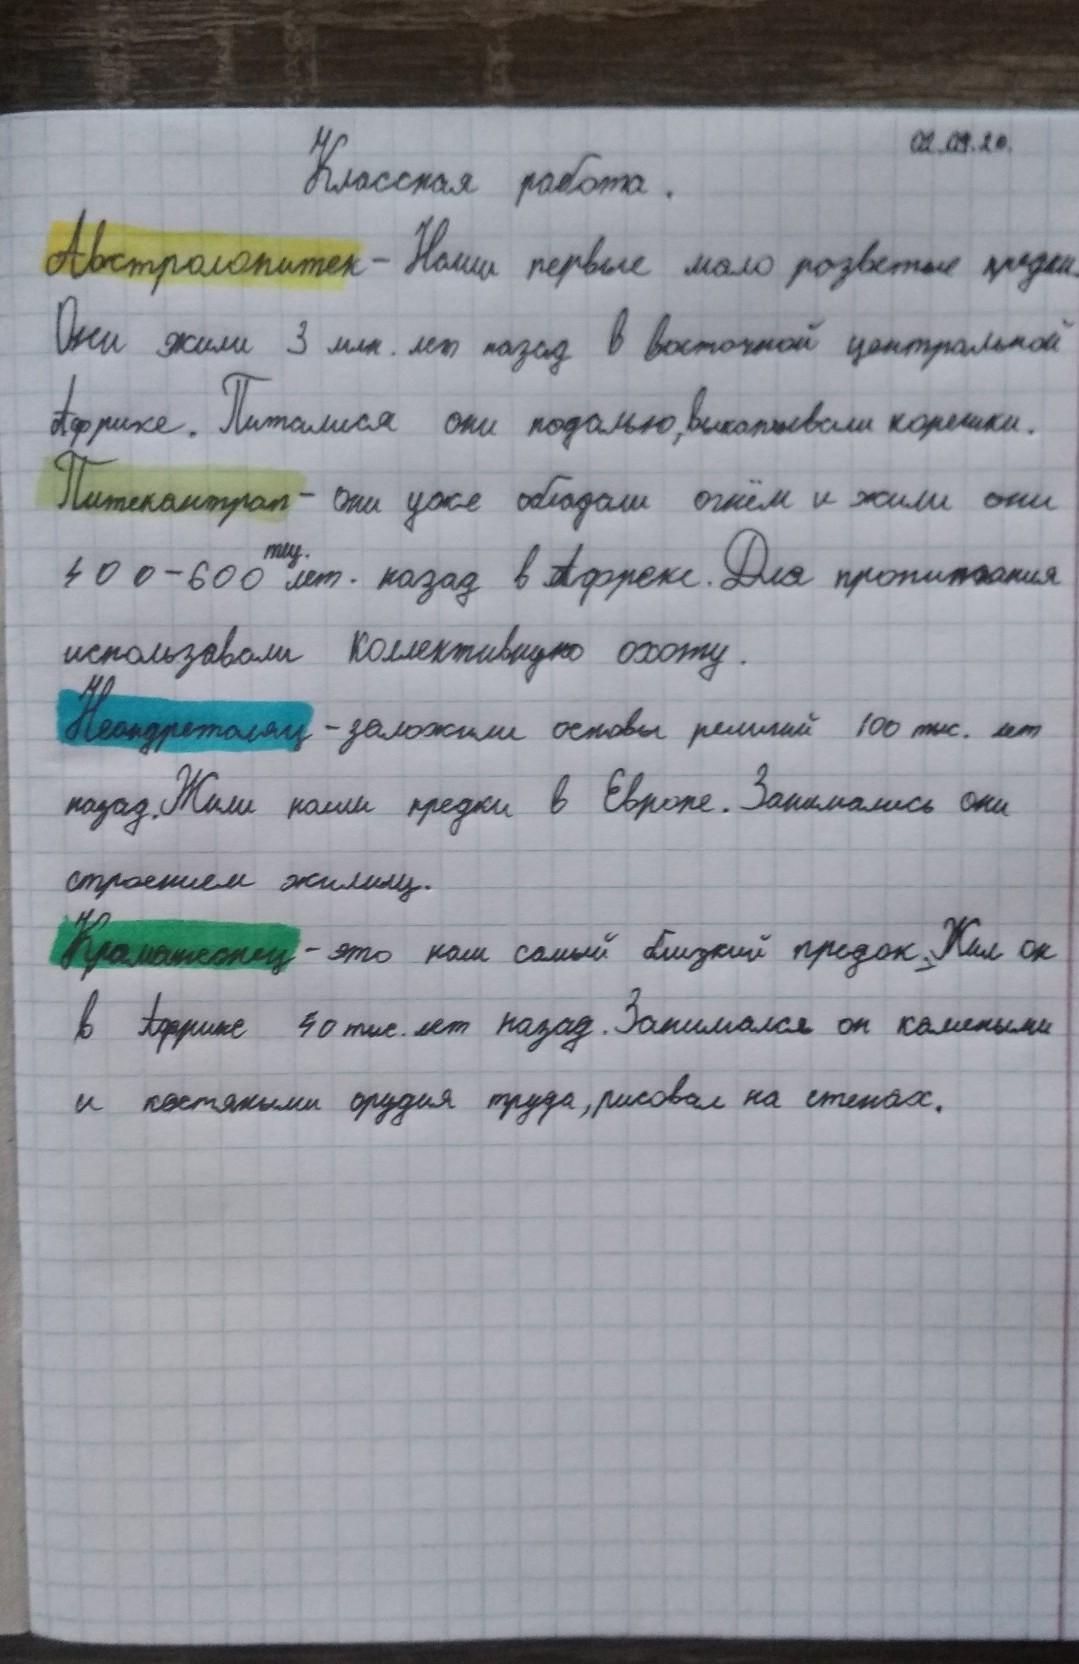 02.09.20.
Классная работа.
Австролопитек - Наши первые мало розветые предки.
Они жили 3 млн. лет назад в восточной центральной
Африке. Питалися они подалью, выкапывали корешки.
Питекантрап - они уже обладали огнём и жили они
400-600 тыц. лет. назад в Африке. Для пропитания
использавали коллективную охоту.
Неандреталец - заложили основы религий 100 тыс. лет
назад. Жили наши предки в Европе. Занимались они
строением жилищ.
Краманьонец - это наш самый близкий предок. Жил он
в Африке 40 тыс. лет назад. Занимался он камеными
и костяными орудия труда, рисовал на стенах.